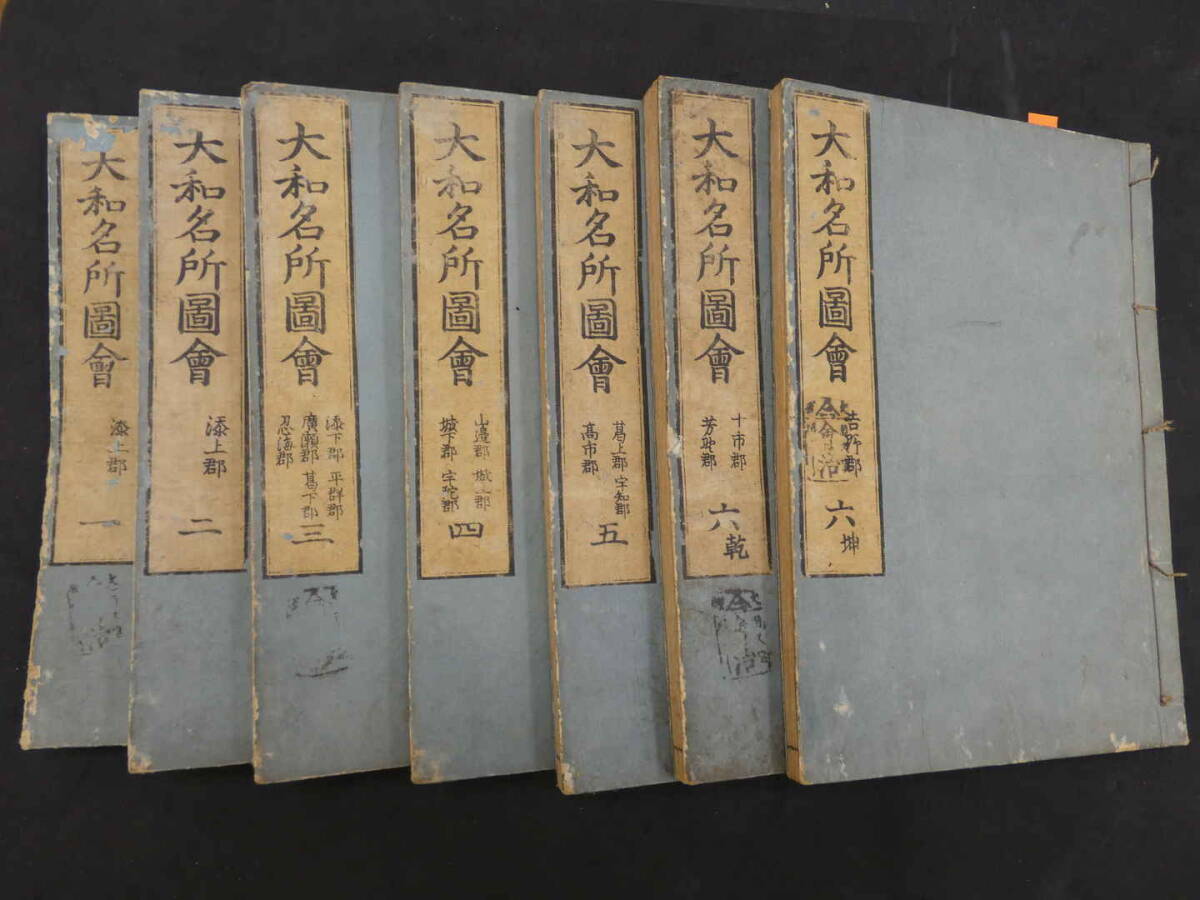 大和名所圖會
添上郡
一
大和名所圖會
添上郡
二
大和名所圖會
添下郡 平群郡
廣瀬郡 葛下郡
忍海郡
三
大和名所圖會
山邉郡 城上郡
城下郡 宇陀郡
四
大和名所圖會
葛上郡 宇知郡
高市郡
五
大和名所圖會
十市郡
芳野郡
六乾
大和名所圖會
吉野郡
六坤